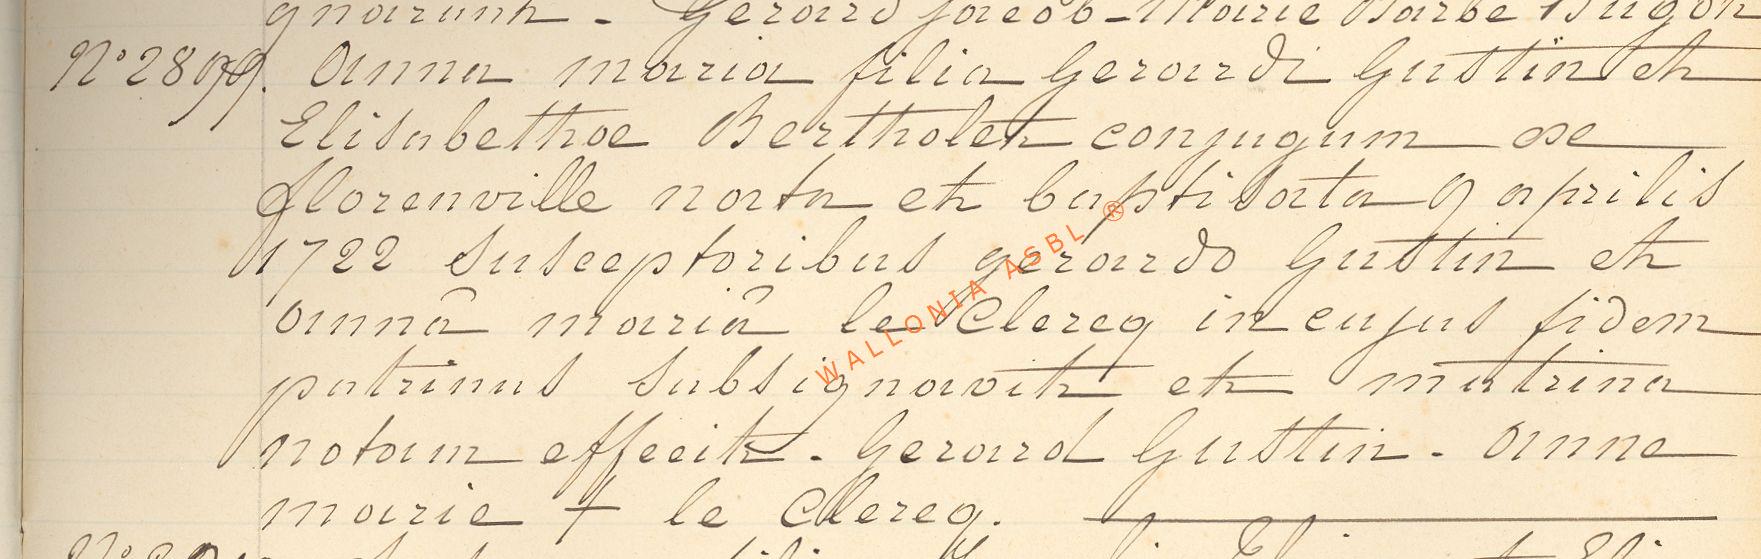 gnarunt - Gerard jacob - Marie Barbe Bugon
N° 2899. Anna maria filia Gerardi Gustin et
Elisabethae Bertholet conjugum ex
florenville nata et baptisata 9 aprilis
1722 Susceptoribus gerardo Gustin et
annâ mariâ le Clercq in cujus fidem
patrinus subsignavit et matrina
notam effecit. Gerard Gustin. Anne
marie + le Clercq.
WALLONIA ASBL ®